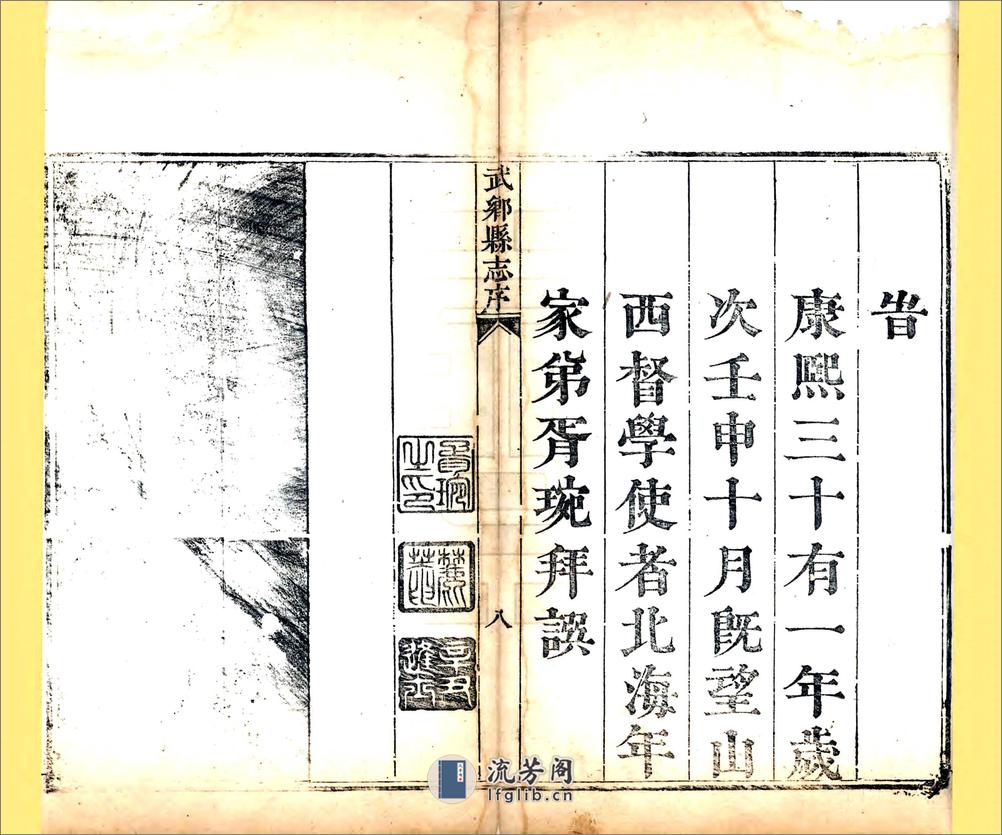 旹
康熙三十有一年歲
次壬申十月旣望山
西督學使者北海年
家弟胥琬拜譔
武鄉縣志序
八
胥琬
之印
流芳阁
lfglib.cn